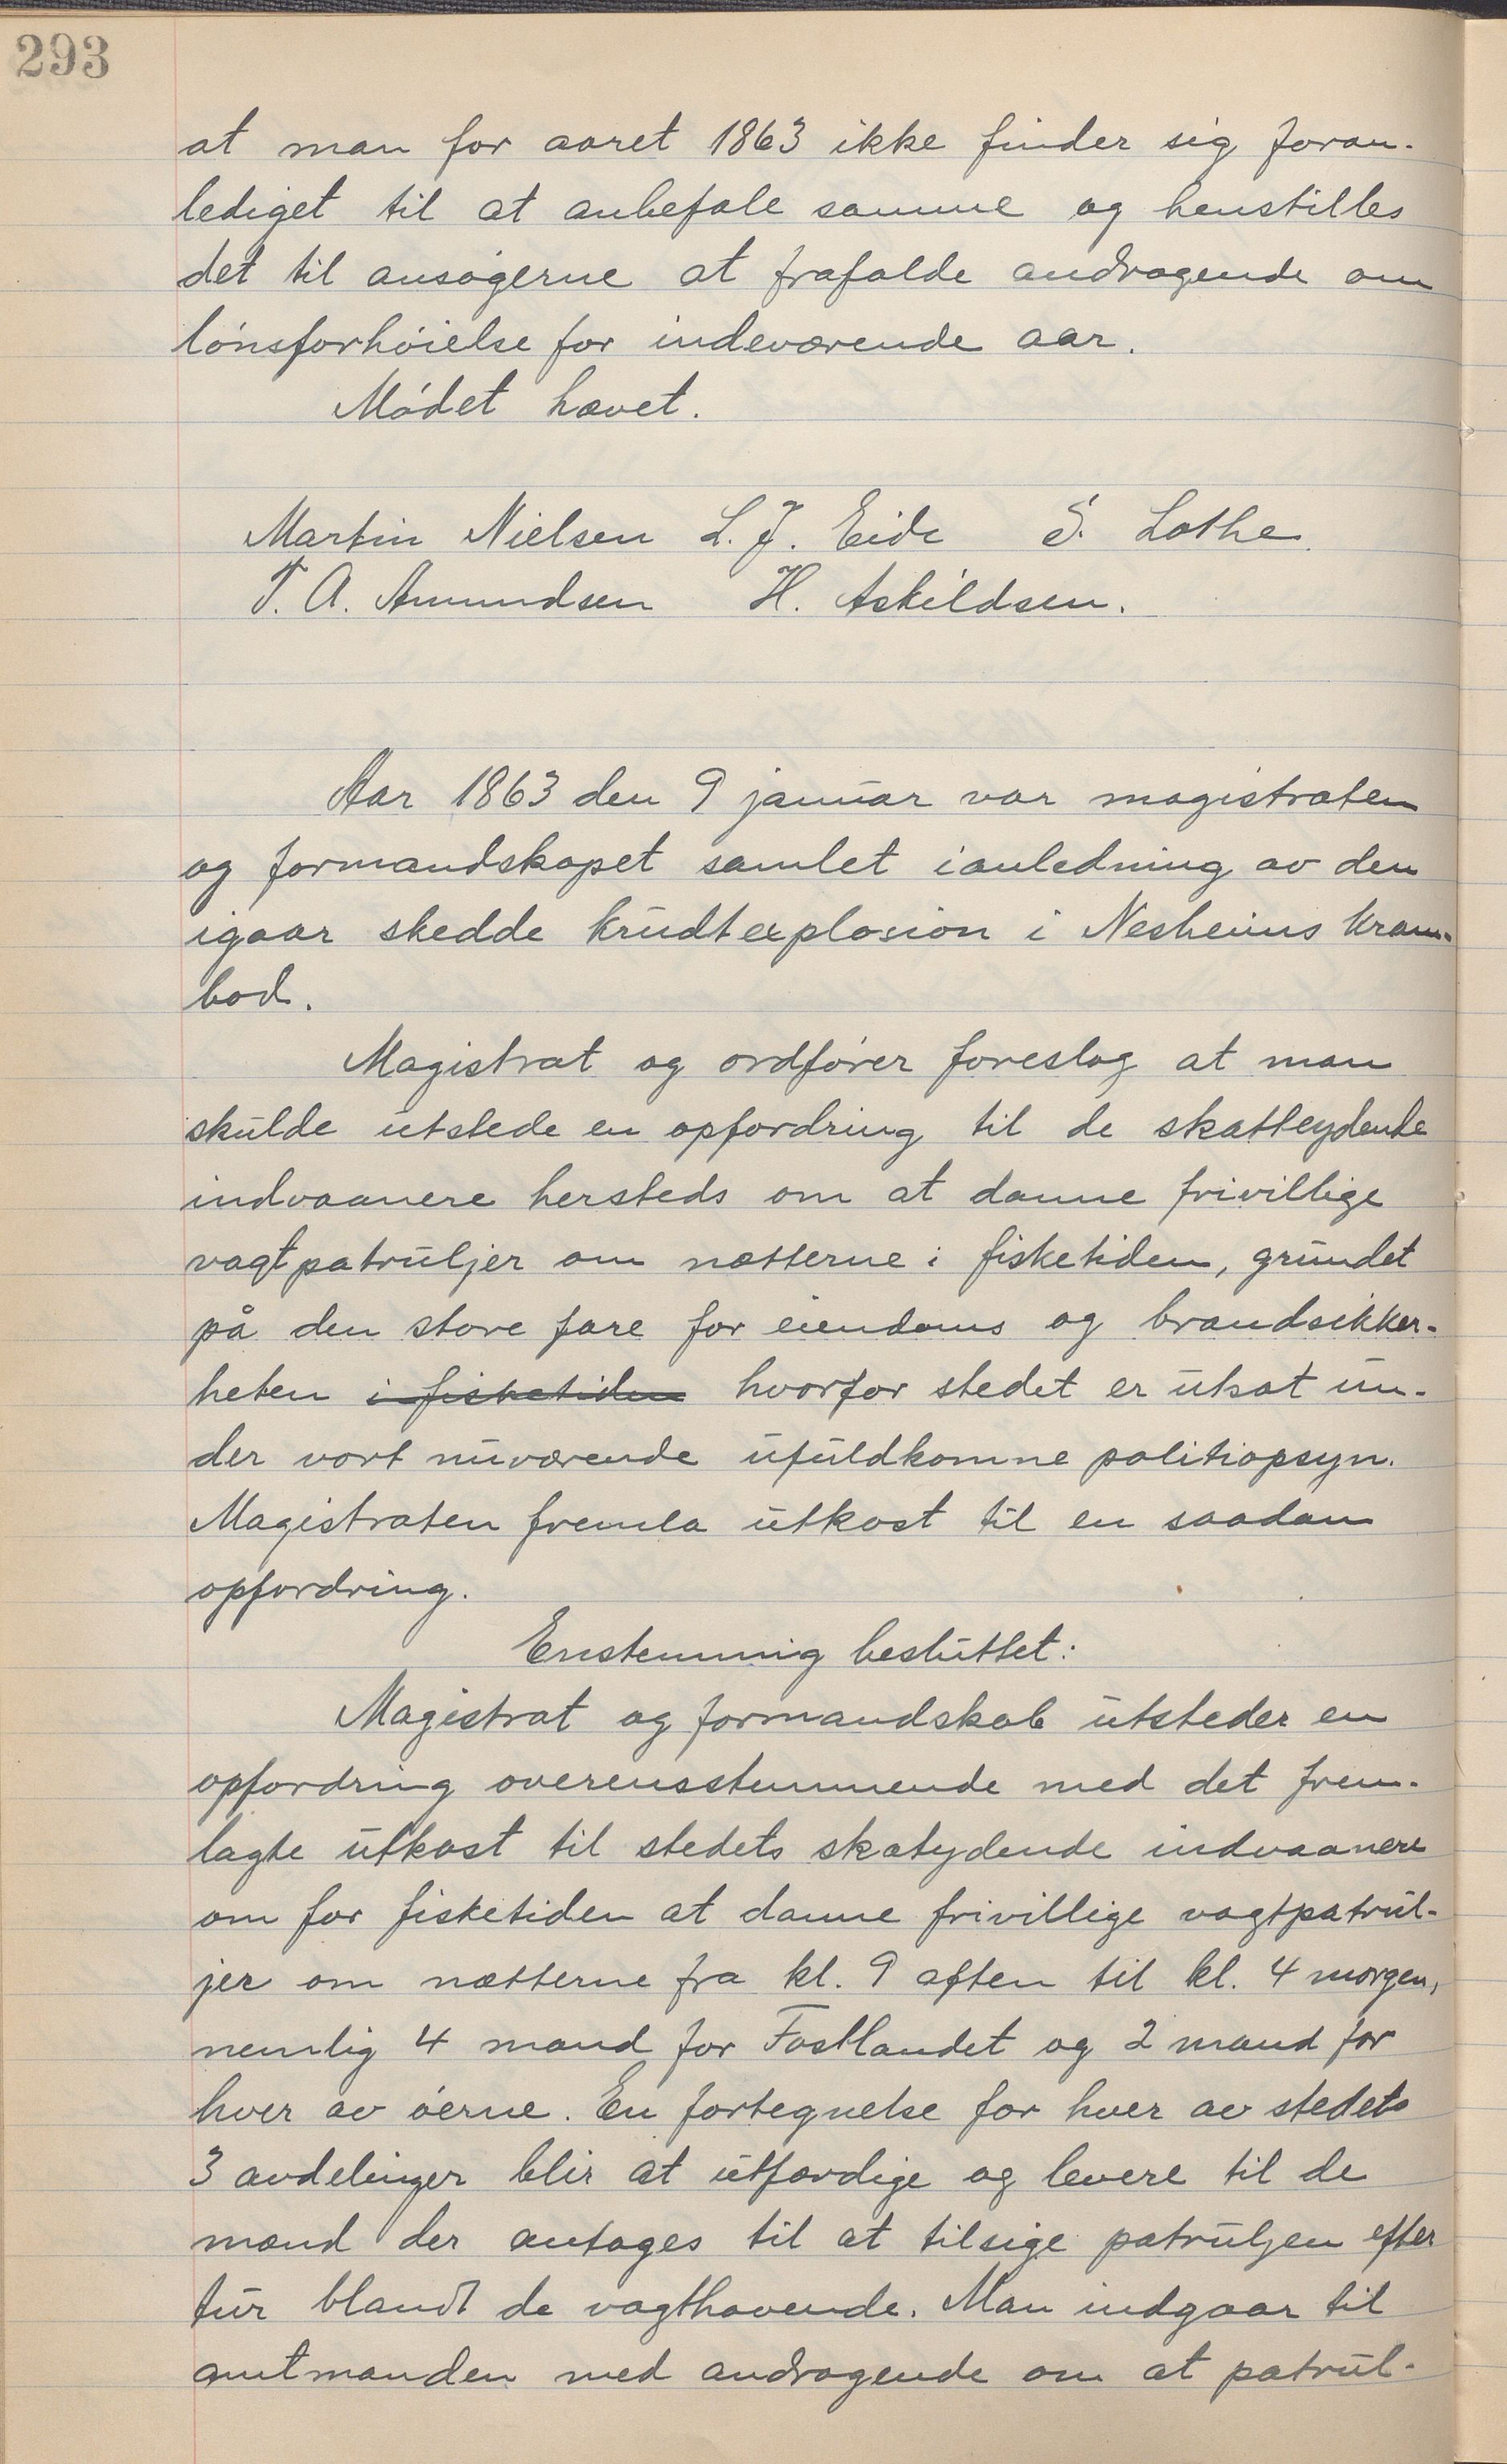 293
at man for aaret 1863 ikke finder sig foran-
lediget til at anbefale samme og henstilles
det til ansøgerne at frafalde andragende om
lönsforhöielse for indeværende aar.
Mödet hævet.
Martin Nielsen L. J. Eide S. Lothe.
T. A. Amundsen H. Askildsen.
Aar 1863 den 9 januar var magistraten
og formandskapet samlet ianledning av den
igaar skedde krudtexplosion i Nesheims kram-
bod.
Magistrat og ordförer foreslog at man
skulde utstede en opfordring til de skatteydende
indvaanere hersteds om at danne frivillige
vagtpatruljer om nætterne i fisketiden, grundet
på den store fare for eiendoms og brandsikker-
heten i fisketiden hvorfor stedet er utsat un-
der vort nuværende ufuldkomne politiopsyn.
Magistraten fremla utkast til en saadan
opfordring.
Enstemmig besluttet:
Magistrat og formandskab utsteder en
opfordring overensstemmende med det frem-
lagte utkast til stedets skatydende indvaanere
om for fisketiden at danne frivillige vagtpatrul-
jer om nætterne fra kl. 9 aften til kl. 4 morgen,
nemlig 4 mand for Fastlandet og 2 mand for
hver av öerne. En fortegnelse for hver av stedets
3 avdelinger blir at utfærdige og levere til de
mænd der antages til at tilsige patruljen efter
tur blandt de vagthavende. Man indgaar til
amtmanden med andragende om at patrul-